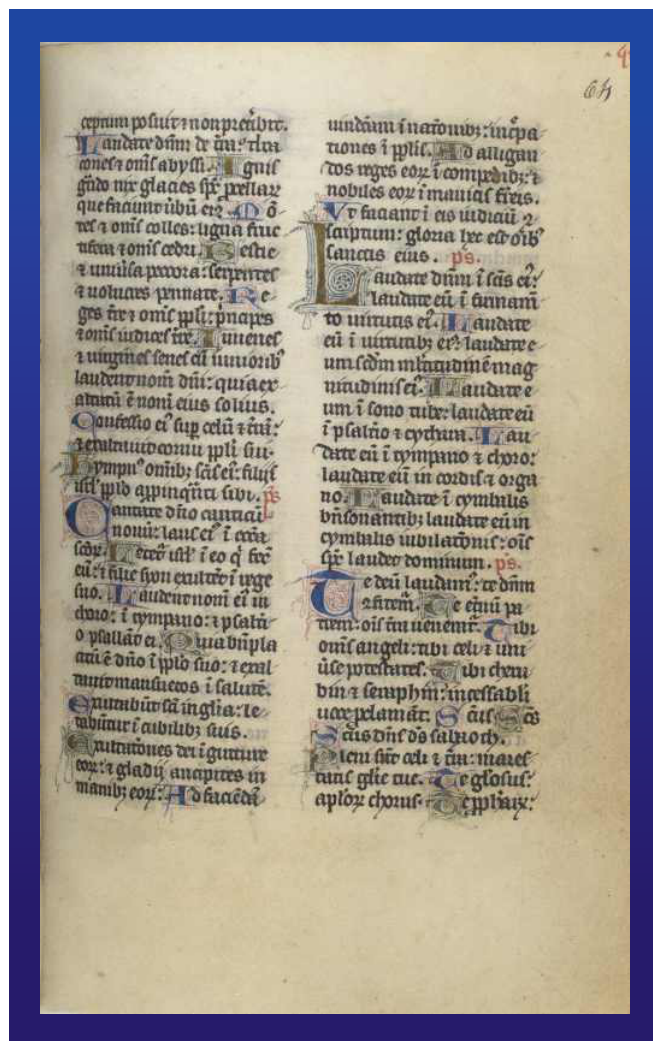 64
ceptum posuit ⁊ non preteribit.
Laudate dnm̄ de tra: dra
cones ⁊ om̄s abyssi. Ignis
gdo nix glacies spc̄ pcellar
que faciunt ūbū eiꝰ. Mō
tes ⁊ om̄s colles: ligna fruc
tifera ⁊ om̄s cedri. Bestie
⁊ uniūsa pecora: serpentes
⁊ uolucres pennate. Re
ges tr̄e ⁊ om̄s ppli: pncipes
⁊ om̄s iudices tr̄e. Iuuenes
⁊ uirgines senes cū iuniorib
laudent nom̄ dn̄i: quia ex
altatū ē nom̄ eius solius.
Confessio eiꝰ sup celū ⁊ tra:
⁊ exaltauit cornu ppli sui.
Hympnꝰ om̄ibꝫ scīs eiꝰ: filijs
isrl̄ pplo appinqñti sibi. ps̄
Cantate dn̄o canticū
nouū: laus eiꝰ ī eccl̄a
scōꝝ. Letet̄ isrl̄ ī eo q̇ fec̄
eū: ⁊ filie syon exultēt ī rege
suo. Laudent nom̄ eiꝰ in
choro: ī tympano: ⁊ psalt̄i
o psallāt ei. Quia bn̄pla
citū ē dn̄o ī pplo suo: ⁊ exal
tauit mansuetos ī salutē.
Exultabūt scī in glīa: le
tabūtur ī cubilibꝫ suis.
Exultatōnes dei ī gutture
eoꝝ: ⁊ gladij ancipites in
manibꝫ eoꝝ: Ad faciēdā
uindctam ī natōnibꝫ: incpa
tiones ī pplīs. Ad alligan
dos reges eoꝝ ī compedibꝫ: ⁊
nobiles eoꝝ ī manicis fr̄eis.
Ut faciant ī eis iudiciū 9
scriptum: gloria hec est oīb
sanctis eius. ps.
Laudate dnm̄ ī scīs eiꝰ:
laudate eū ī firmam̄
to uirtutis eiꝰ. Laudate
eū ī uirtutibꝫ eiꝰ: laudate e
um scdm̄ ml̄titudinē mag
nitudinis eiꝰ. Laudate e
um ī sono tube: laudate eū
ī psaltio ⁊ cythara. Lau
date eū ī tympano ⁊ choro:
laudate eū in cordis ⁊ orga
no. Laudate ī cymbalis
bn̄sonantibꝫ laudate eū in
cymbalis iubilatōnis: oīs
spc̄ laudet dominum. ps.
Te deū laudamꝰ: te dnm̄
9fitemꝰ. Te et̄nū pa
trem: oīs tra uenerat̄. Tibi
om̄s angeli: tibi celi ⁊ uni
ūse potestates. Tibi cheru
bin ⁊ seraphin: incessabli
uoce pclamāt. Scūs Scs̄
Scūs dn̄s ds̄ sabaoth.
Pleni sūt celi ⁊ tra: maies
tatis glīe tue. Te glōsus:
aplōꝝ chorus. Te pph̄aꝝ: